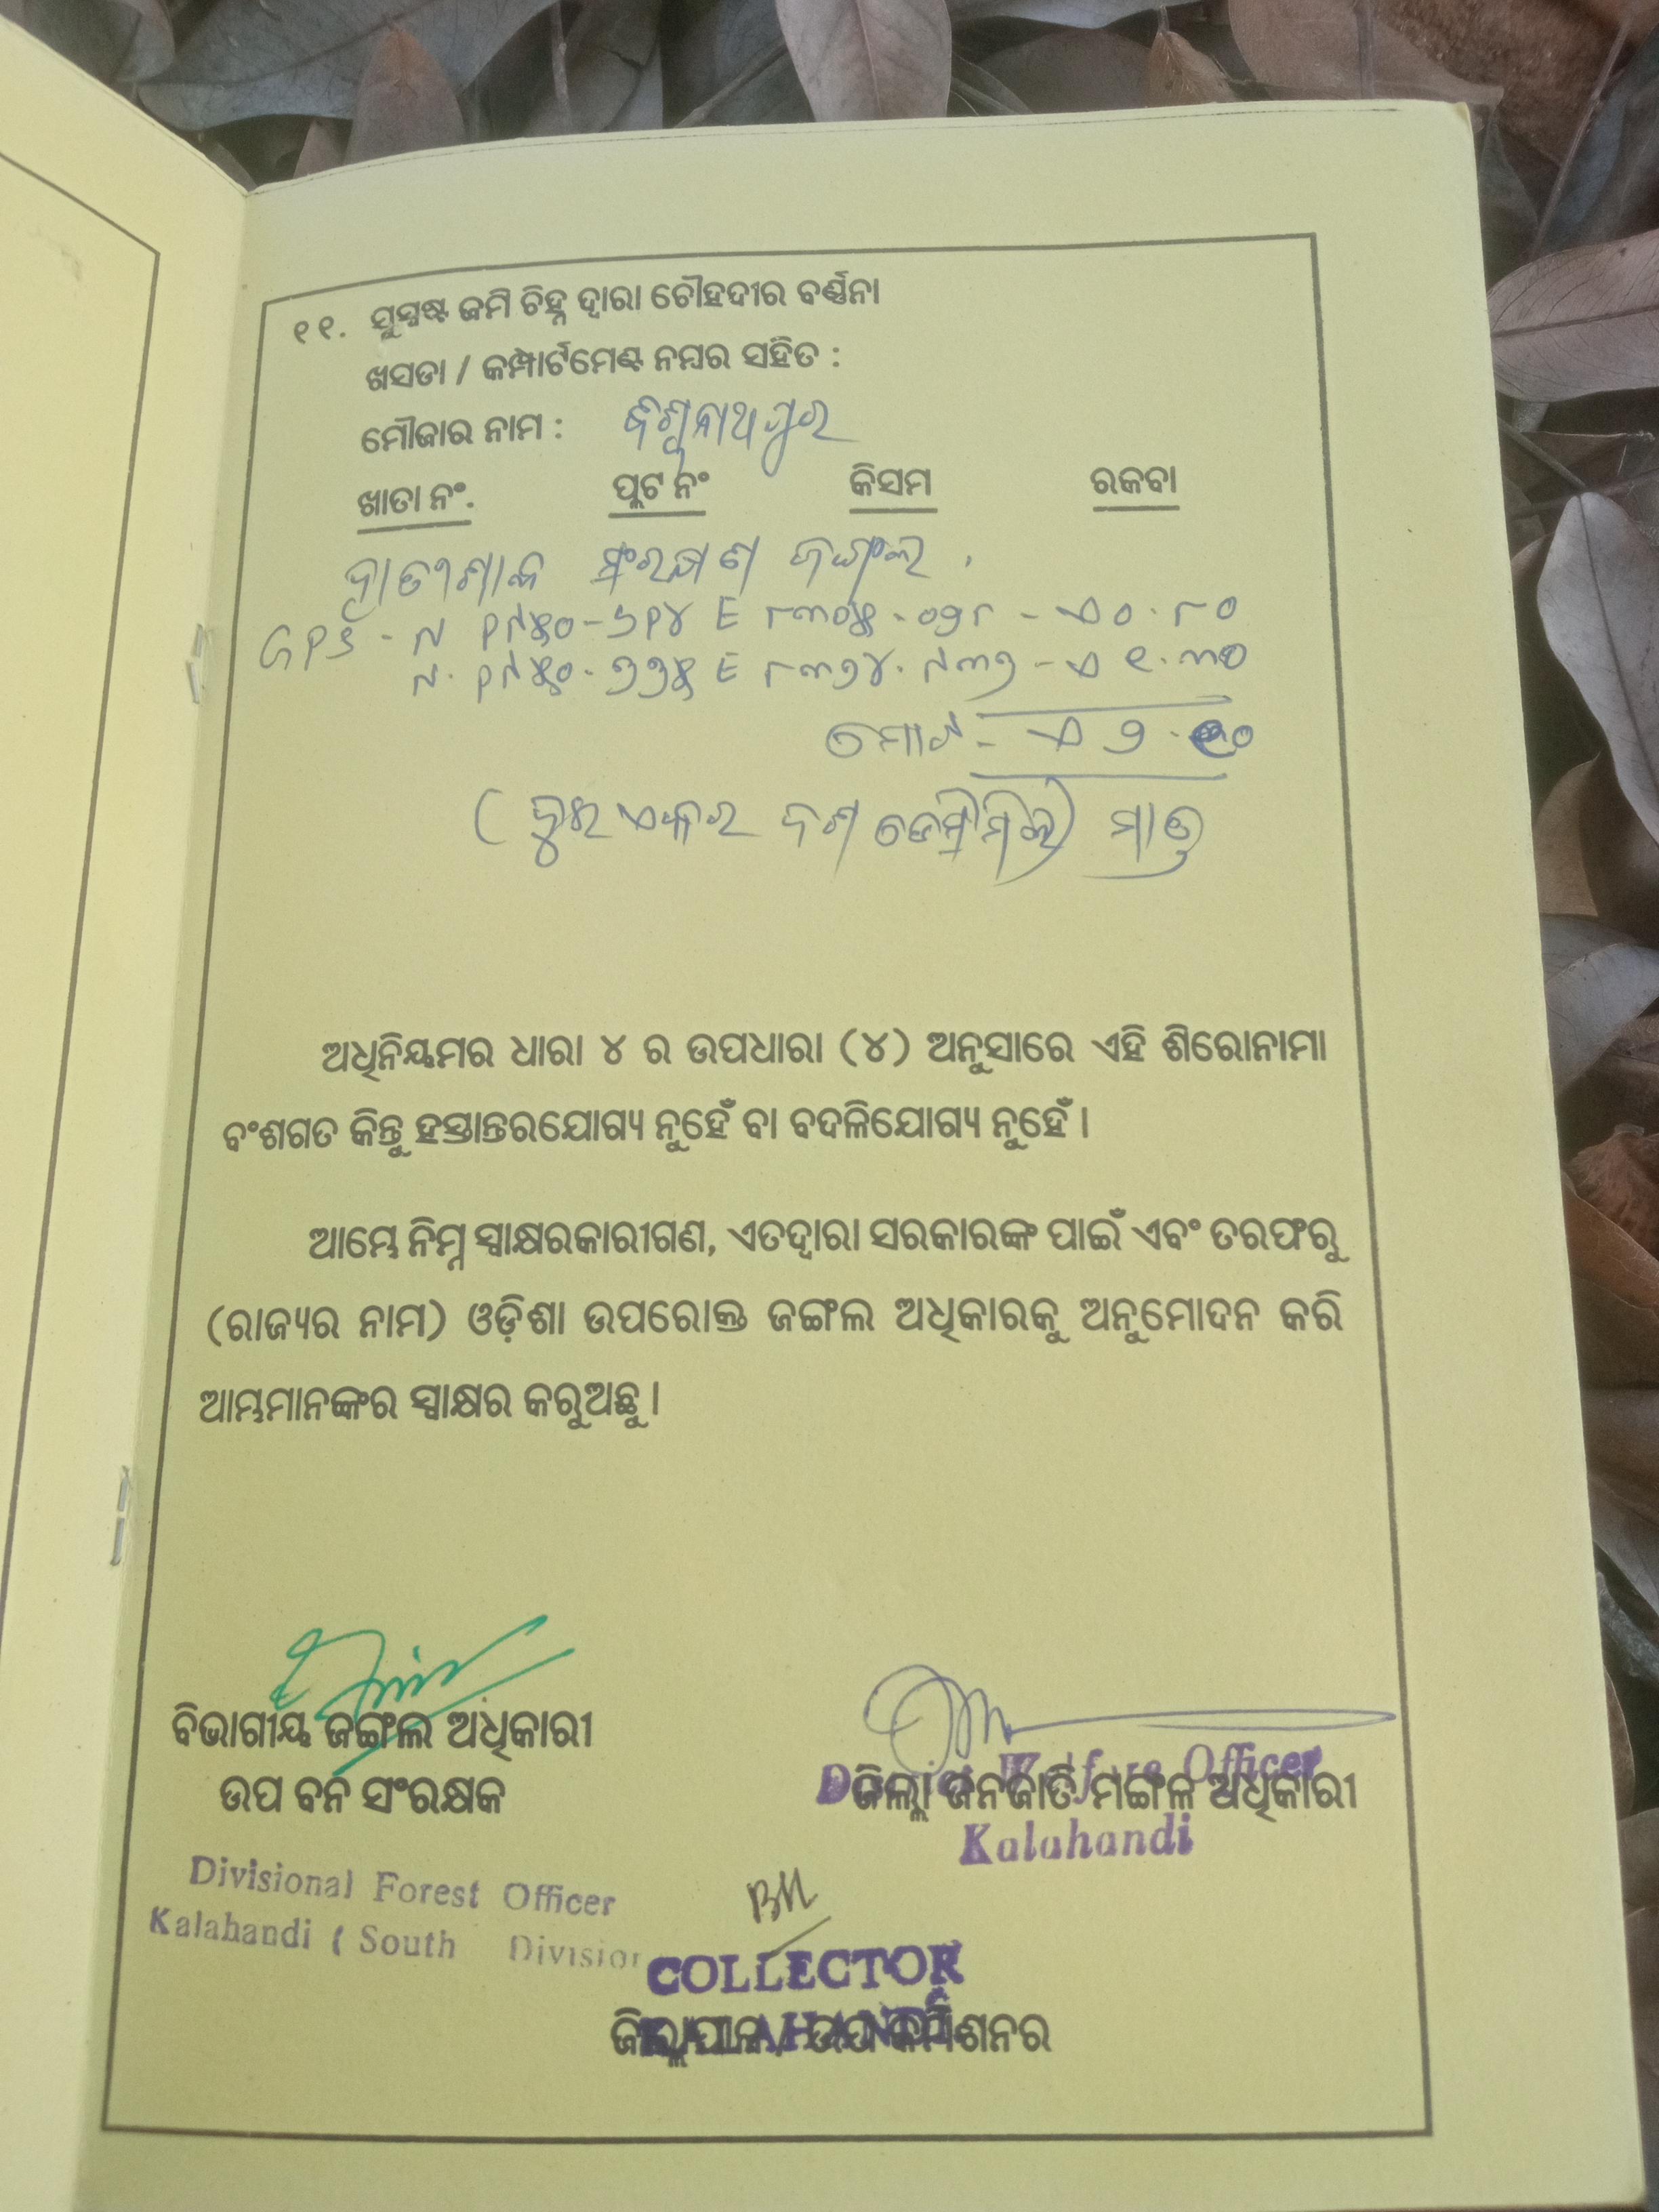 ୧୧. ସୁସ୍ପଷ୍ଟ ଜମି ଚିହ୍ନ ଦ୍ୱାରା ଚୌହଦୀର ବର୍ଣ୍ଣନା
ଖସଡା / କମ୍ପାର୍ଟମେଣ୍ଟ ନମ୍ବର ସହିତ :
ମୌଜାର ନାମ : ବିଶ୍ୱନାଥପୁର
ଖାତା ନଂ. ପ୍ଲଟ ନଂ କିସମ ରକବା
ସଂରକ୍ଷଣ ଜଙ୍ଗଲ
GPS - N E - ଏ ୦.୮୦
N. E - ଏ ୧.୩୦
ମୋଟ - ଏ ୨.୧୦
(ଦୁଇ ଏକର ଦଶ ଡେସିମିଲ) ମାତ୍ର
ଅଧିନିୟମର ଧାରା ୪ ର ଉପଧାରା (୪) ଅନୁସାରେ ଏହି ଶିରୋନାମା
ବଂଶଗତ କିନ୍ତୁ ହସ୍ତାନ୍ତରଯୋଗ୍ୟ ନୁହେଁ ବା ବଦଳିଯୋଗ୍ୟ ନୁହେଁ ।
ଆମ୍ଭେ ନିମ୍ନ ସ୍ୱାକ୍ଷରକାରୀଗଣ, ଏତଦ୍ୱାରା ସରକାରଙ୍କ ପାଇଁ ଏବଂ ତରଫରୁ
(ରାଜ୍ୟର ନାମ) ଓଡ଼ିଶା ଉପରୋକ୍ତ ଜଙ୍ଗଲ ଅଧିକାରକୁ ଅନୁମୋଦନ କରି
ଆମ୍ଭମାନଙ୍କର ସ୍ୱାକ୍ଷର କରୁଅଛୁ ।
ବିଭାଗୀୟ ଜଙ୍ଗଲ ଅଧିକାରୀ
ଉପ ବନ ସଂରକ୍ଷକ
Divisional Forest Officer
Kalahandi ( South Division
District Welfare Officer
ଜିଲ୍ଲା ଜନଜାତି ମଙ୍ଗଳ ଅଧିକାରୀ
Kalahandi
COLLECTOR
KALAHANDI
ଜିଲ୍ଲାପାଳ / ଉପ କମିଶନର